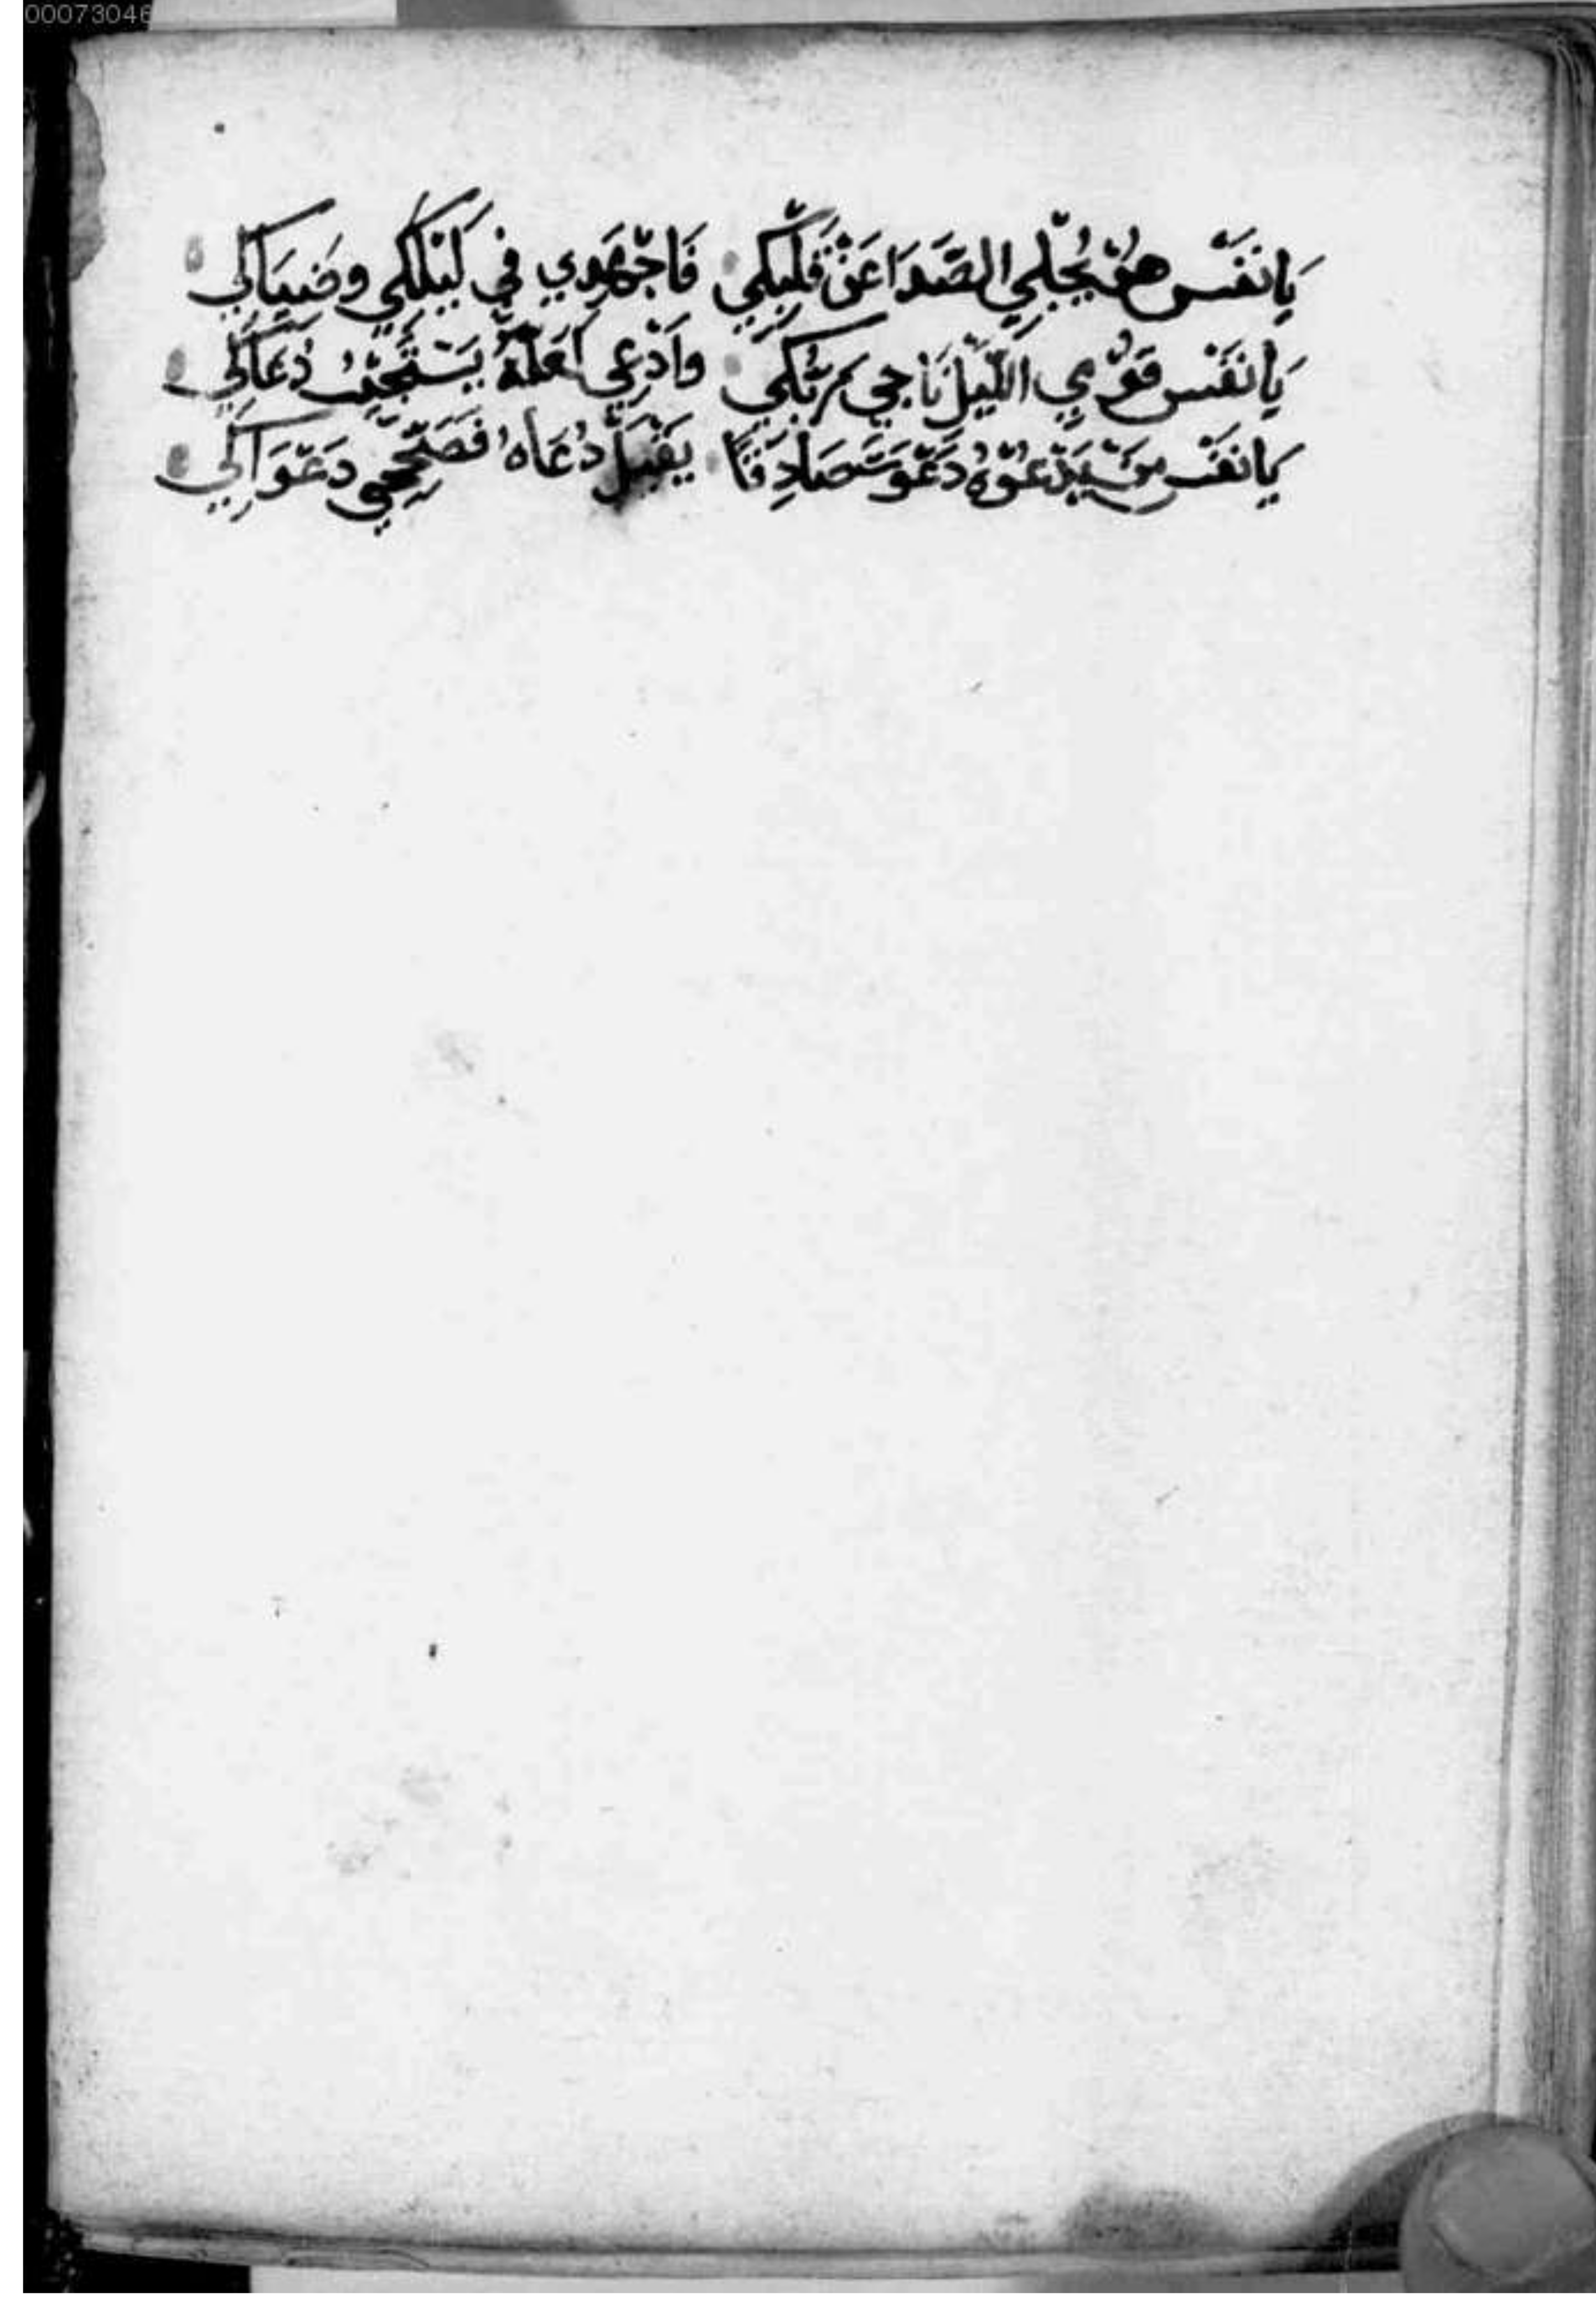 00073046
يَانَفْس هُوْ يُجْلِي الصَّدَا عَنْ قَلْبِكِي فَاجْهَدِي فِي لَيْلِكِي وضَيَاكِي
يَا نَفْس قُوْمِي اللَّيْلَ نَاجِي رَبُّكِي وادْعِي لَعَلَّهُ يَسْتَجِيْبُ دُعَاكِي
يَا نَفْس مَنْ يَدْعُوْهُ دَعْوَتَ صَادِقًا يَقْبَلْ دُعَاهُ فَصَحِّحِي دَعْوَاكِي